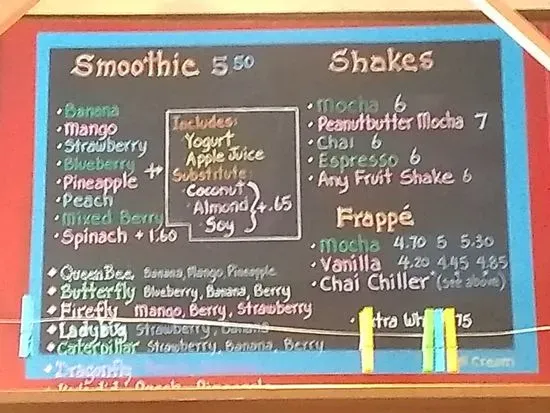 Smoothie 5 50
• Banana
• Mango
• Strawberry
• Blueberry
• Pineapple
• Peach
• Mixed Berry
• Spinach + 1.60
Includes:
Yogurt
Apple Juice
Substitute:
Coconut
Almond
Soy
+.65
QueenBee Banana, Mango, Pineapple
Butterfly Blueberry, Banana, Berry
Firefly Mango, Berry, Strawberry
Ladybug Strawberry, Banana
Caterpillar Strawberry, Banana, Berry
Dragonfly
Shakes
• Mocha 6
• Peanutbutter Mocha 7
• Chai 6
• Espresso 6
• Any Fruit Shake 6
Frappé
• Mocha 4.70 5 5.30
• Vanilla 4.20 4.45 4.85
• Chai Chiller* (see above)
75
Cream